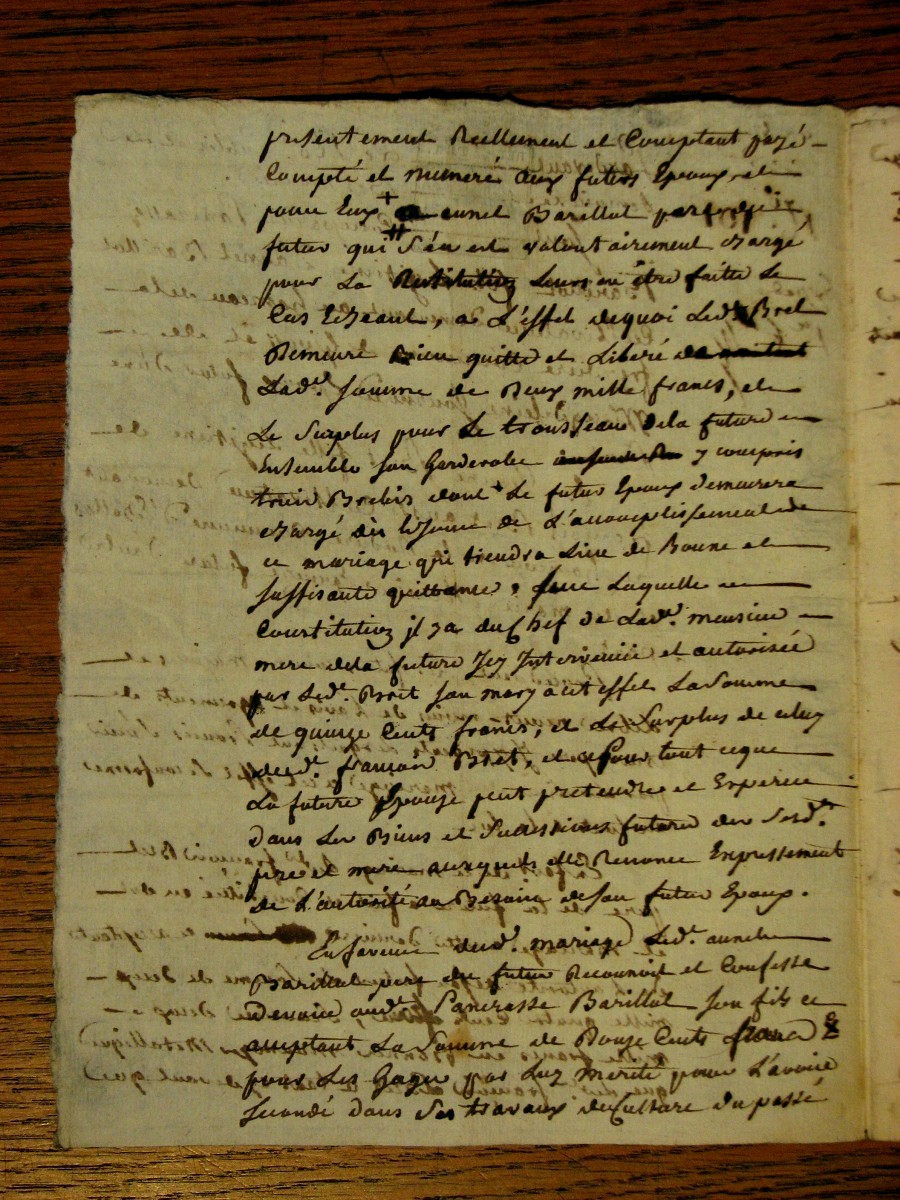 presentement Reellement et Comptant payé
Compté et numeré aux futurs Epoux, et
pour Eux + aunet Barillot pere du
futur qui # s'en est volontairement chargé
pour La Restitution Leurs en être faitte Le
Cas Echeant, a L'effet dequoi Ledt Bret
Demeure Bien quitte et Libéré de
Ladte somme de Deux mille francs, et
Le Surplus pour Le trousseau dela future
Ensemble son Garderobe y compris
trois Brebis dont + Le futur Epoux demeurera
chargé dès le Jour de L'accomplissement de
ce mariage qui tiendra Lieu de Bonne et
suffisante quittance, sur Laquelle
Constitution jl y a du Chef de Ladte
mere dela future Jcy Intervenüe et autorisée
par Ledt Bret son mary a cet effet La Somme
de quinze Cents francs, et Le Surplus de celuy
dudt françois Bret, et pour tout ceque
La future Epouze peut pretendre et Esperer
Dans Les Biens et Successions futures des Sesdts
pere et mere auxquels elle Renonce Expressement
de L'autorité au Besoin de son futur Epoux.
En faveur dudt mariage Ledt aunet
Barillot pere du futur Reconnoit et Confesse
Devoir audt Pancrasse Barillot son fils ce
acceptant La Somme de Douze Cents franc
pour Les Gages par Luy merité pour L'avoir
secondé dans Ses travaux de Culture du passé